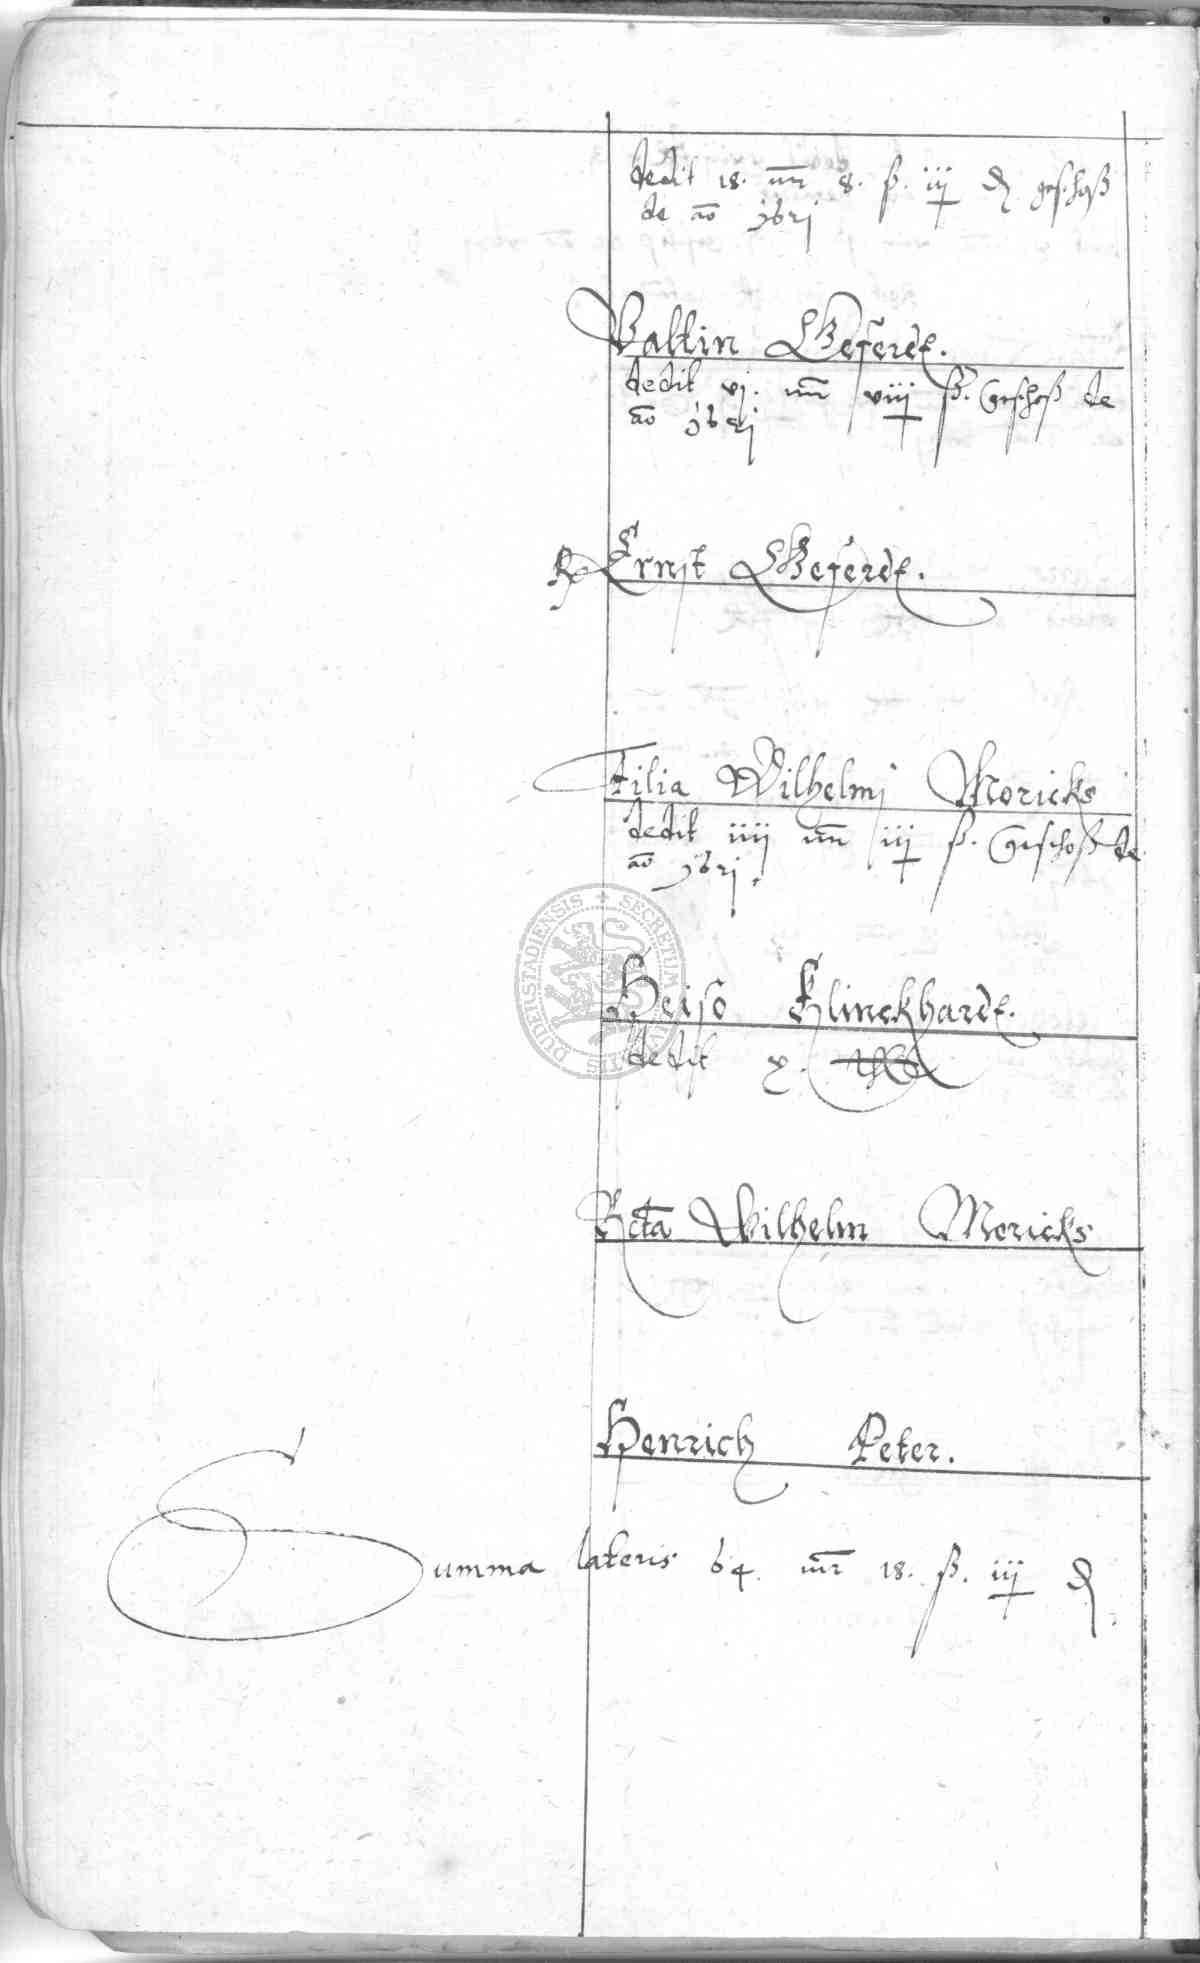 dedit 18. mr 8. ß. iij ₰ geschoß
de ao 1621
Valtin Geferdt.
dedit vj. mr viij ß. Geschoß de
ao 1621
Ernst Geferdt.
Filia Wilhelmj Moricks
dedit iiij mr iij ß. Geschoß de
ao 1621.
Heiso Klinckhardt.
dedit x.
Rcta Wilhelm Moricks
Henrich Peter.
Summa lateris 64. mr 18. ß. iij ₰
SECRETUM CIVITATIS DUDERSTADIENSIS